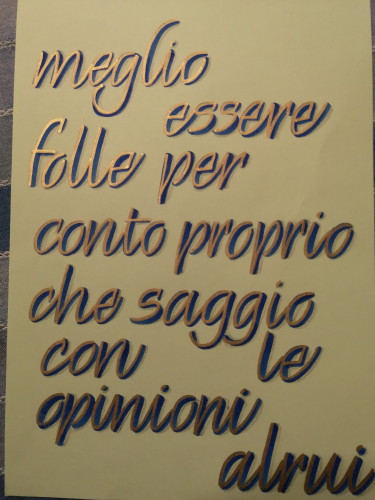 meglio
essere
folle per
conto proprio
che saggio
con le
opinioni
alrui